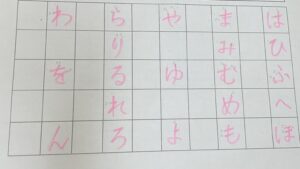 はひふへほ
まみむめも
やゆよ
らりるれろ
わをん